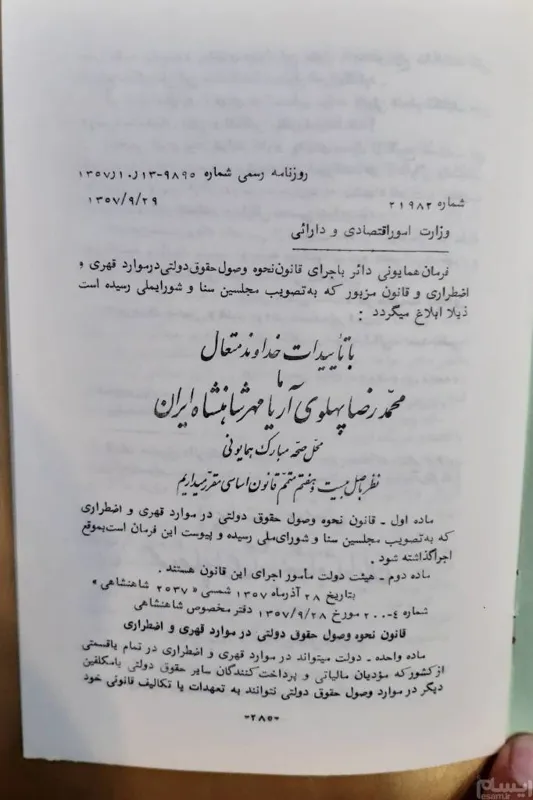 روزنامه رسمی شماره ۹۸۹۵-۱۳ر۱۰ر۱۳۵۷
شماره ۲۱۹۸۲
۱۳۵۷/۹/۲۹
وزارت اموراقتصادی و دارائی
فرمان همایونی دائر باجرای قانون نحوه وصول حقوق دولتی درموارد قهری و
اضطراری و قانون مزبور که به تصویب مجلسین سنا و شورایملی رسیده است
ذیلا ابلاغ میگردد :
با تأییدات خداوند متعال
ما
محمدرضا پهلوی آریامهر شاهنشاه ایران
محل صحه مبارک همایونی
نظر باصل بیست و هفتم متمم قانون اساسی مقرر میداریم
ماده اول ـ قانون نحوه وصول حقوق دولتی در موارد قهری و اضطراری
که به تصویب مجلسین سنا و شورای ملی رسیده و پیوست این فرمان است بموقع
اجرا گذاشته شود .
ماده دوم ـ هیئت دولت مأمور اجرای این قانون هستند .
بتاریخ ۲۸ آذرماه ۱۳۵۷ شمسی « ۲۵۳۷ شاهنشاهی »
شماره ۴-۲۰۰۰ مورخ ۱۳۵۷/۹/۲۸ دفتر مخصوص شاهنشاهی
قانون نحوه وصول حقوق دولتی در موارد قهری و اضطراری
ماده واحده ـ دولت میتواند در موارد قهری و اضطراری در تمام یاقسمتی
از کشور که مؤدیان مالیاتی و پرداخت کنندگان سایر حقوق دولتی یامکلفین
دیگر در موارد وصول حقوق دولتی نتوانند به تعهدات یا تکالیف قانونی خود
-۲۸۵-
ایسام
esam.ir